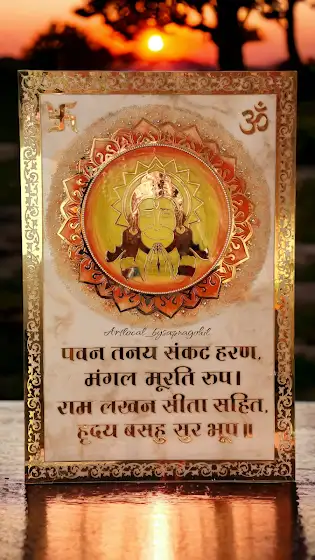 ॐ
Artlocal_bysapnagohil
पवन तनय संकट हरण,
मंगल मूरति रुप।
राम लखन सीता सहित,
हृदय बसहु सुर भूप॥